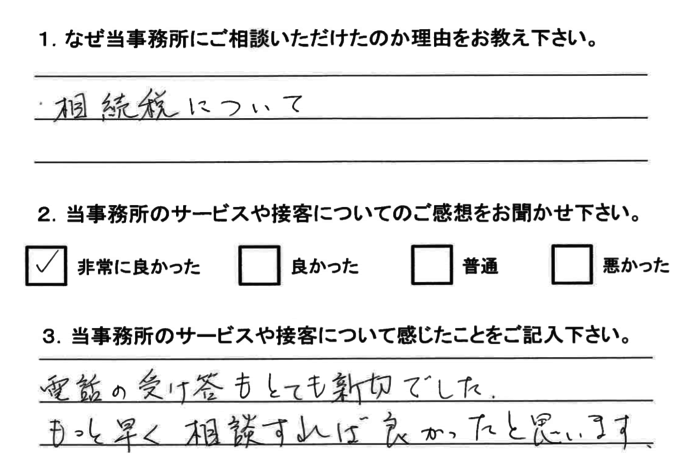 1. なぜ当事務所にご相談いただけたのか理由をお教え下さい。
・相続税について
2. 当事務所のサービスや接客についてのご感想をお聞かせ下さい。
✓ 非常に良かった 良かった 普通 悪かった
3. 当事務所のサービスや接客について感じたことをご記入下さい。
電話の受け答もとても新切でした.
もっと早く相談すれば良かったと思います.